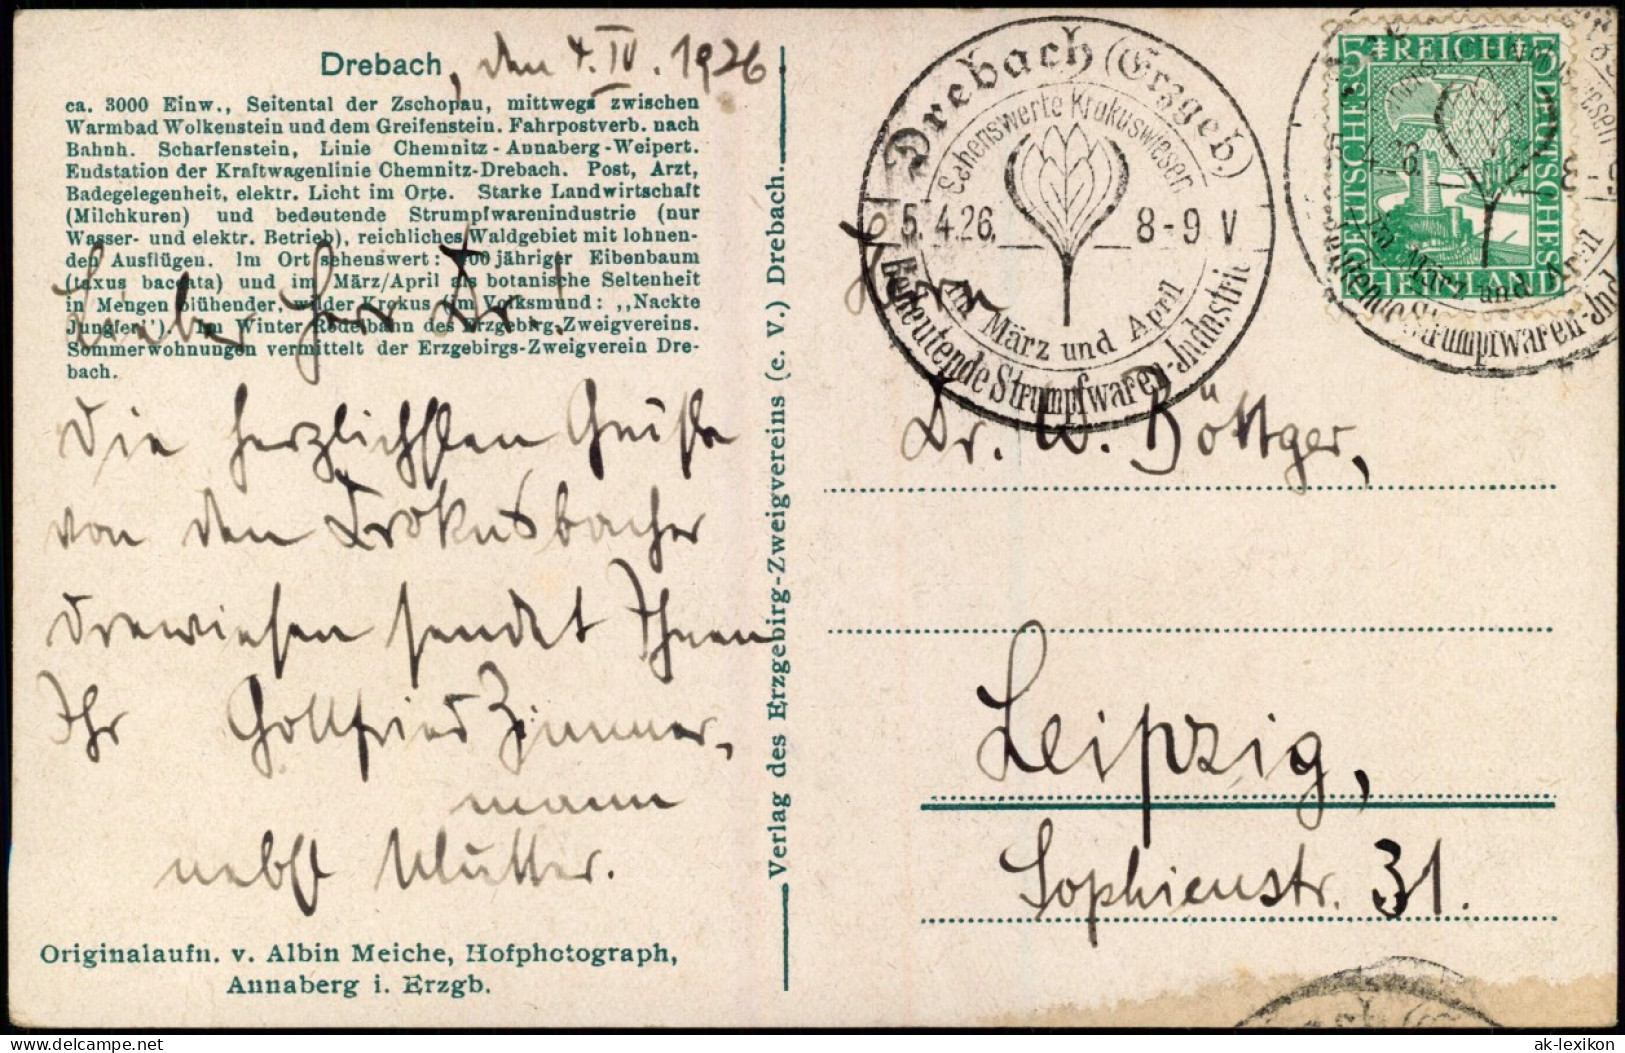 Drebach, den 4. IV. 1926
ca. 3000 Einw., Seitental der Zschopau, mittwegs zwischen
Warmbad Wolkenstein und dem Greifenstein. Fahrpostverb. nach
Bahnh. Scharfenstein, Linie Chemnitz-Annaberg-Weipert.
Endstation der Kraftwagenlinie Chemnitz-Drebach. Post, Arzt,
Badegelegenheit, elektr. Licht im Orte. Starke Landwirtschaft
(Milchkuren) und bedeutende Strumpfwarenindustrie (nur
Wasser- und elektr. Betrieb), reichliches Waldgebiet mit lohnen-
den Ausflügen. Im Ort sehenswert: 400jähriger Eibenbaum
(taxus baccata) und im März/April als botanische Seltenheit
in Mengen blühender, wilder Krokus (im Volksmund: „Nackte
Jungfern"). Im Winter Rodelbahn des Erzgebirg.Zweigvereins.
Sommerwohnungen vermittelt der Erzgebirgs-Zweigverein Dre-
bach.
Lieber Herr Dr.!
Die herzlichsten Grüße
von den Krokusbacher
sendet Ihnen
Ihr Gottfried Zimmer-
mann
nebst Mutter.
Originalaufn. v. Albin Meiche, Hofphotograph,
Annaberg i. Erzgb.
Verlag des Erzgebirg-Zweigvereins (e. V.) Drebach.
Drebach (Erzgeb.)
Sehenswerte Krokuswiesen
5.4.26. 8-9 V
Im März und April
Bedeutende Strumpfwaren-Industrie
5 REICH 5
DEUTSCHES
DEUTSCHES
REICH
März und April
Bedeutende Strumpfwaren-Ind
Dr. W. Böttger,
Leipzig,
Sophienstr. 31.
ak-lexikon